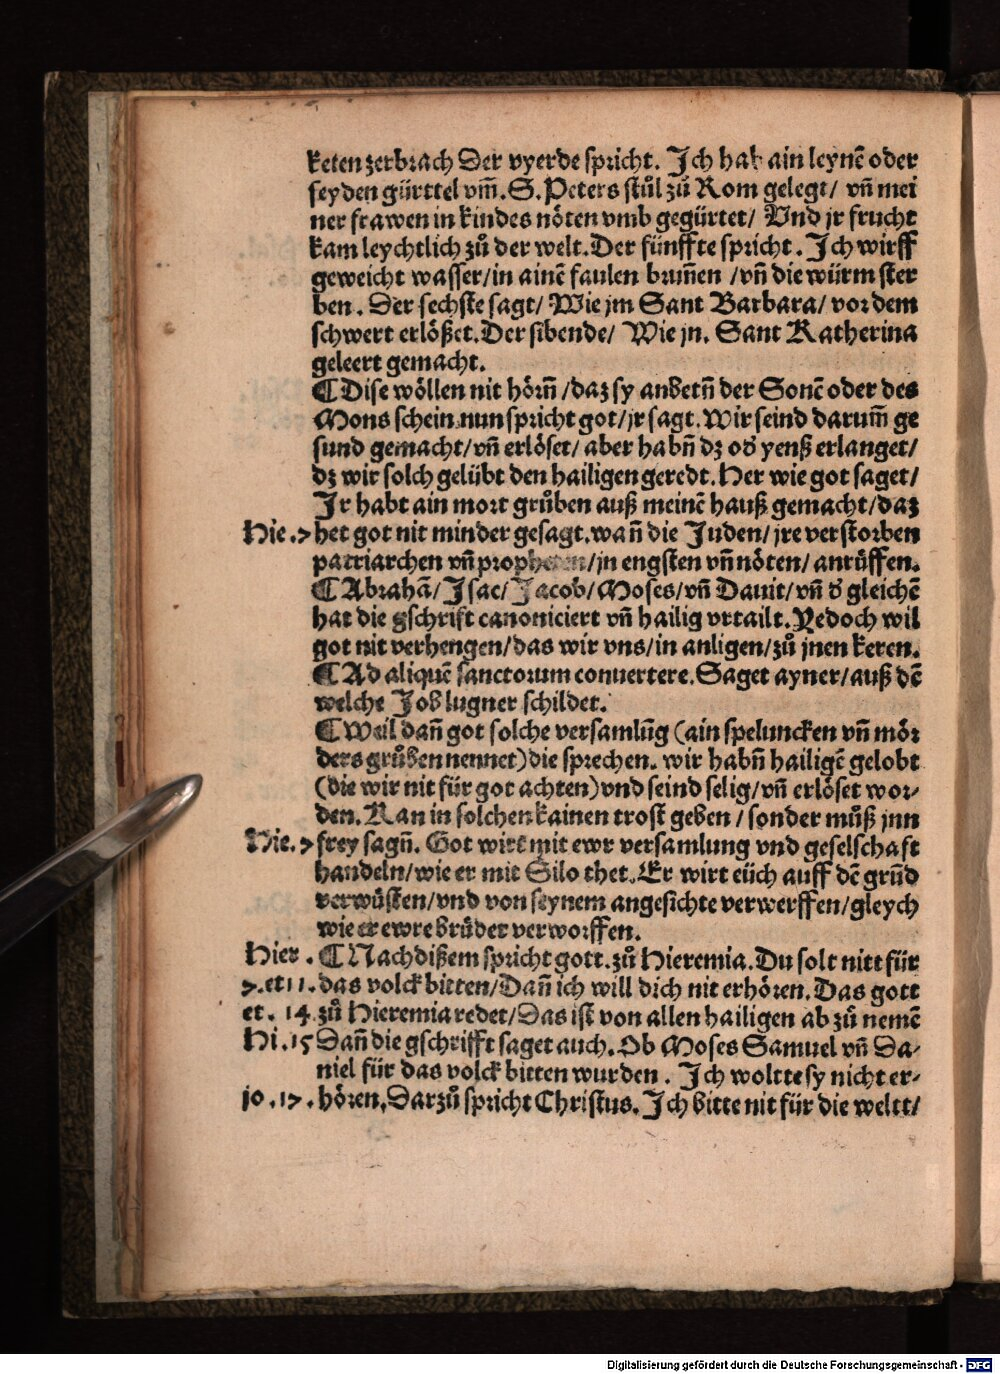 keten zerbrach Der vyerde spricht. Jch hab ain leynē oder
seyden gürttel vm̄. S. Peters stůl zů Rom gelegt/ vn̄ mei
ner frawen in kindes nöten vmb gegürtet/ Vnd jr frucht
kam leychtlich zů der welt. Der fünffte spricht. Jch wirff
geweicht wasser/in ainē faulen brun̄en /vn̄ die würm ster
ben. Der sechste sagt/ Wie jm Sant Barbara/ vor dem
schwert erlößet. Der sibende/ Wie jn. Sant Katherina
geleert gemacht.
¶ Dise wöllen nit hörn̄ /daz sy anbetn̄ der Sonē oder des
Mons schein. nun spricht got/jr sagt. Wir seind darum̄ ge
sund gemacht/vn̄ erlöset/ aber habn̄ dz od̕ yenß erlanget/
dz wir solch gelübt den hailigen geredt. Her wie got saget/
Jr habt ain mort grůben auß meinē hauß gemacht/daz
Hie .7 het got nit minder gesagt. wan̄ die Juden/ jre verstorben
patriarchen vn̄ propheten/jn engsten vn̄ nöten/ anrůffen.
¶ Abrahā/ Jsac/ Jacob/ Moses/ vn̄ Dauit/ vn̄ d̕ gleichē
hat die gschrift canoniciert vn̄ hailig vrtailt. Yedoch wil
got nit verhengen/das wir vns/in anligen/zů jnen keren.
¶ Ad aliquē sanctorum conuertere. Saget ayner/auß dē
welche Job lugner schildet.
¶ Weil dan̄ got solche versamlūg (ain speluncken vn̄ mör
ders grůben nennet) die sprechen. wir habn̄ hailigē gelobt
(die wir nit für got achten) vnd seind selig/vn̄ erlöset wor-
den. Kan in solchen kainen trost geben / sonder můß jnn
Hie. 7 frey sagn̄. Got wirt mit ewr versamlung vnd geselschaft
handeln/wie er mit Silo thet. Er wirt eüch auff dē grūd
verwüsten/vnd von seynem angesichte verwerffen/gleych
wie er ewre brůder verworffen.
Hier . ¶ Nach dißem spricht gott. zů Hieremia. Du solt nitt für
7. et 11. das volck bitten/Dan̄ ich will dich nit erhören. Das gott
et . 14 zů Hieremia redet/Das ist von allen hailigen ab zů nemē
Hi. 15 Dan̄ die gschrifft saget auch. Ob Moses Samuel vn̄ Da-
niel für das volck bitten wurden . Jch woltte sy nicht er-
jo . 17 . hören. Darzů spricht Christus. Jch bitte nit für die weltt/
Digitalisierung gefördert durch die Deutsche Forschungsgemeinschaft - DFG